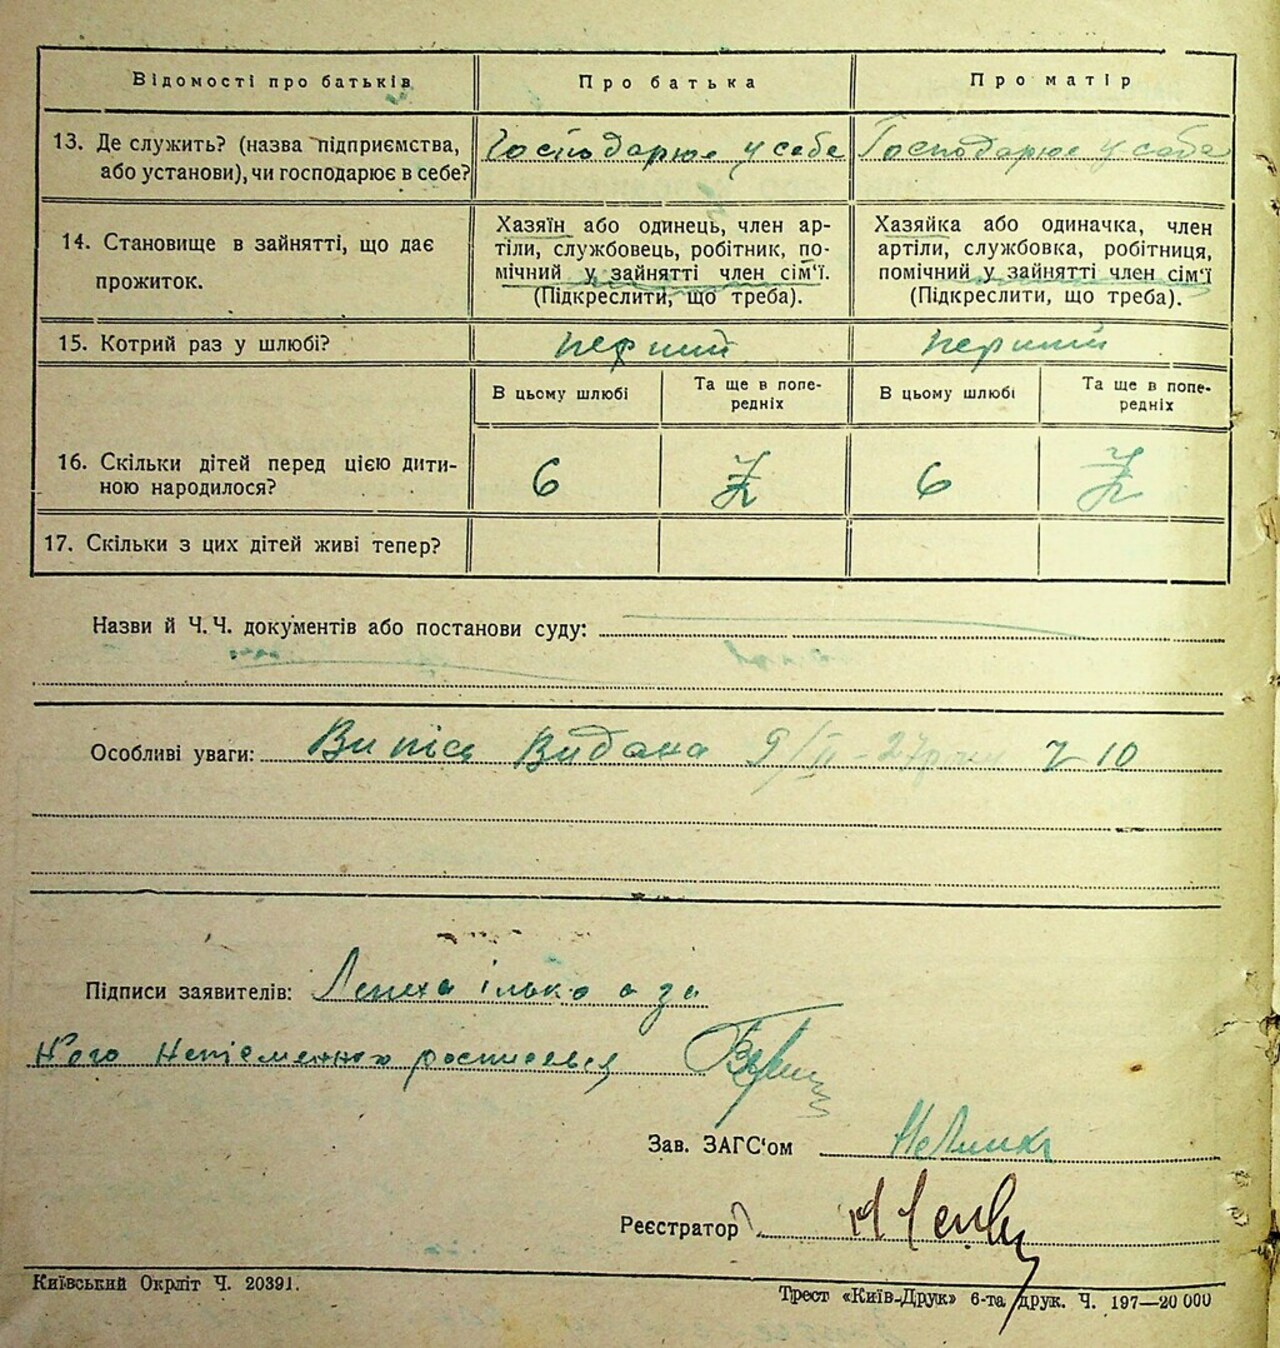 Відомості про батьків Про батька Про матір
13. Де служить? (назва підприємства, або установи), чи господарює в себе? Господарює у себе Господарює у себе
14. Становище в зайнятті, що дає прожиток.
Хазяїн або одинець, член ар-
тіли, службовець, робітник, по-
мічний у зайнятті член сім‘ї.
(Підкреслити, що треба).
Хазяйка або одиначка, член
артіли, службовка, робітниця,
помічний у зайнятті член сім‘ї
(Підкреслити, що треба).
15. Котрий раз у шлюбі? перший перший
В цьому шлюбі Та ще в попе-
редніх В цьому шлюбі Та ще в попе-
редніх
16. Скільки дітей перед цією дити-
ною народилося? 6 6
17. Скільки з цих дітей живі тепер?
Назви й Ч. Ч. документів або постанови суду:
Особливі уваги: Випись Видана 9/II-27 року 10
Підписи заявителів: Лепеха ілько а за
його неписьменного росписавься
Зав. ЗАГС‘ом
Реєстратор
Київський Окрліт Ч. 20391.
Трест «Київ-Друк» 6-та друк. Ч. 197—20 000